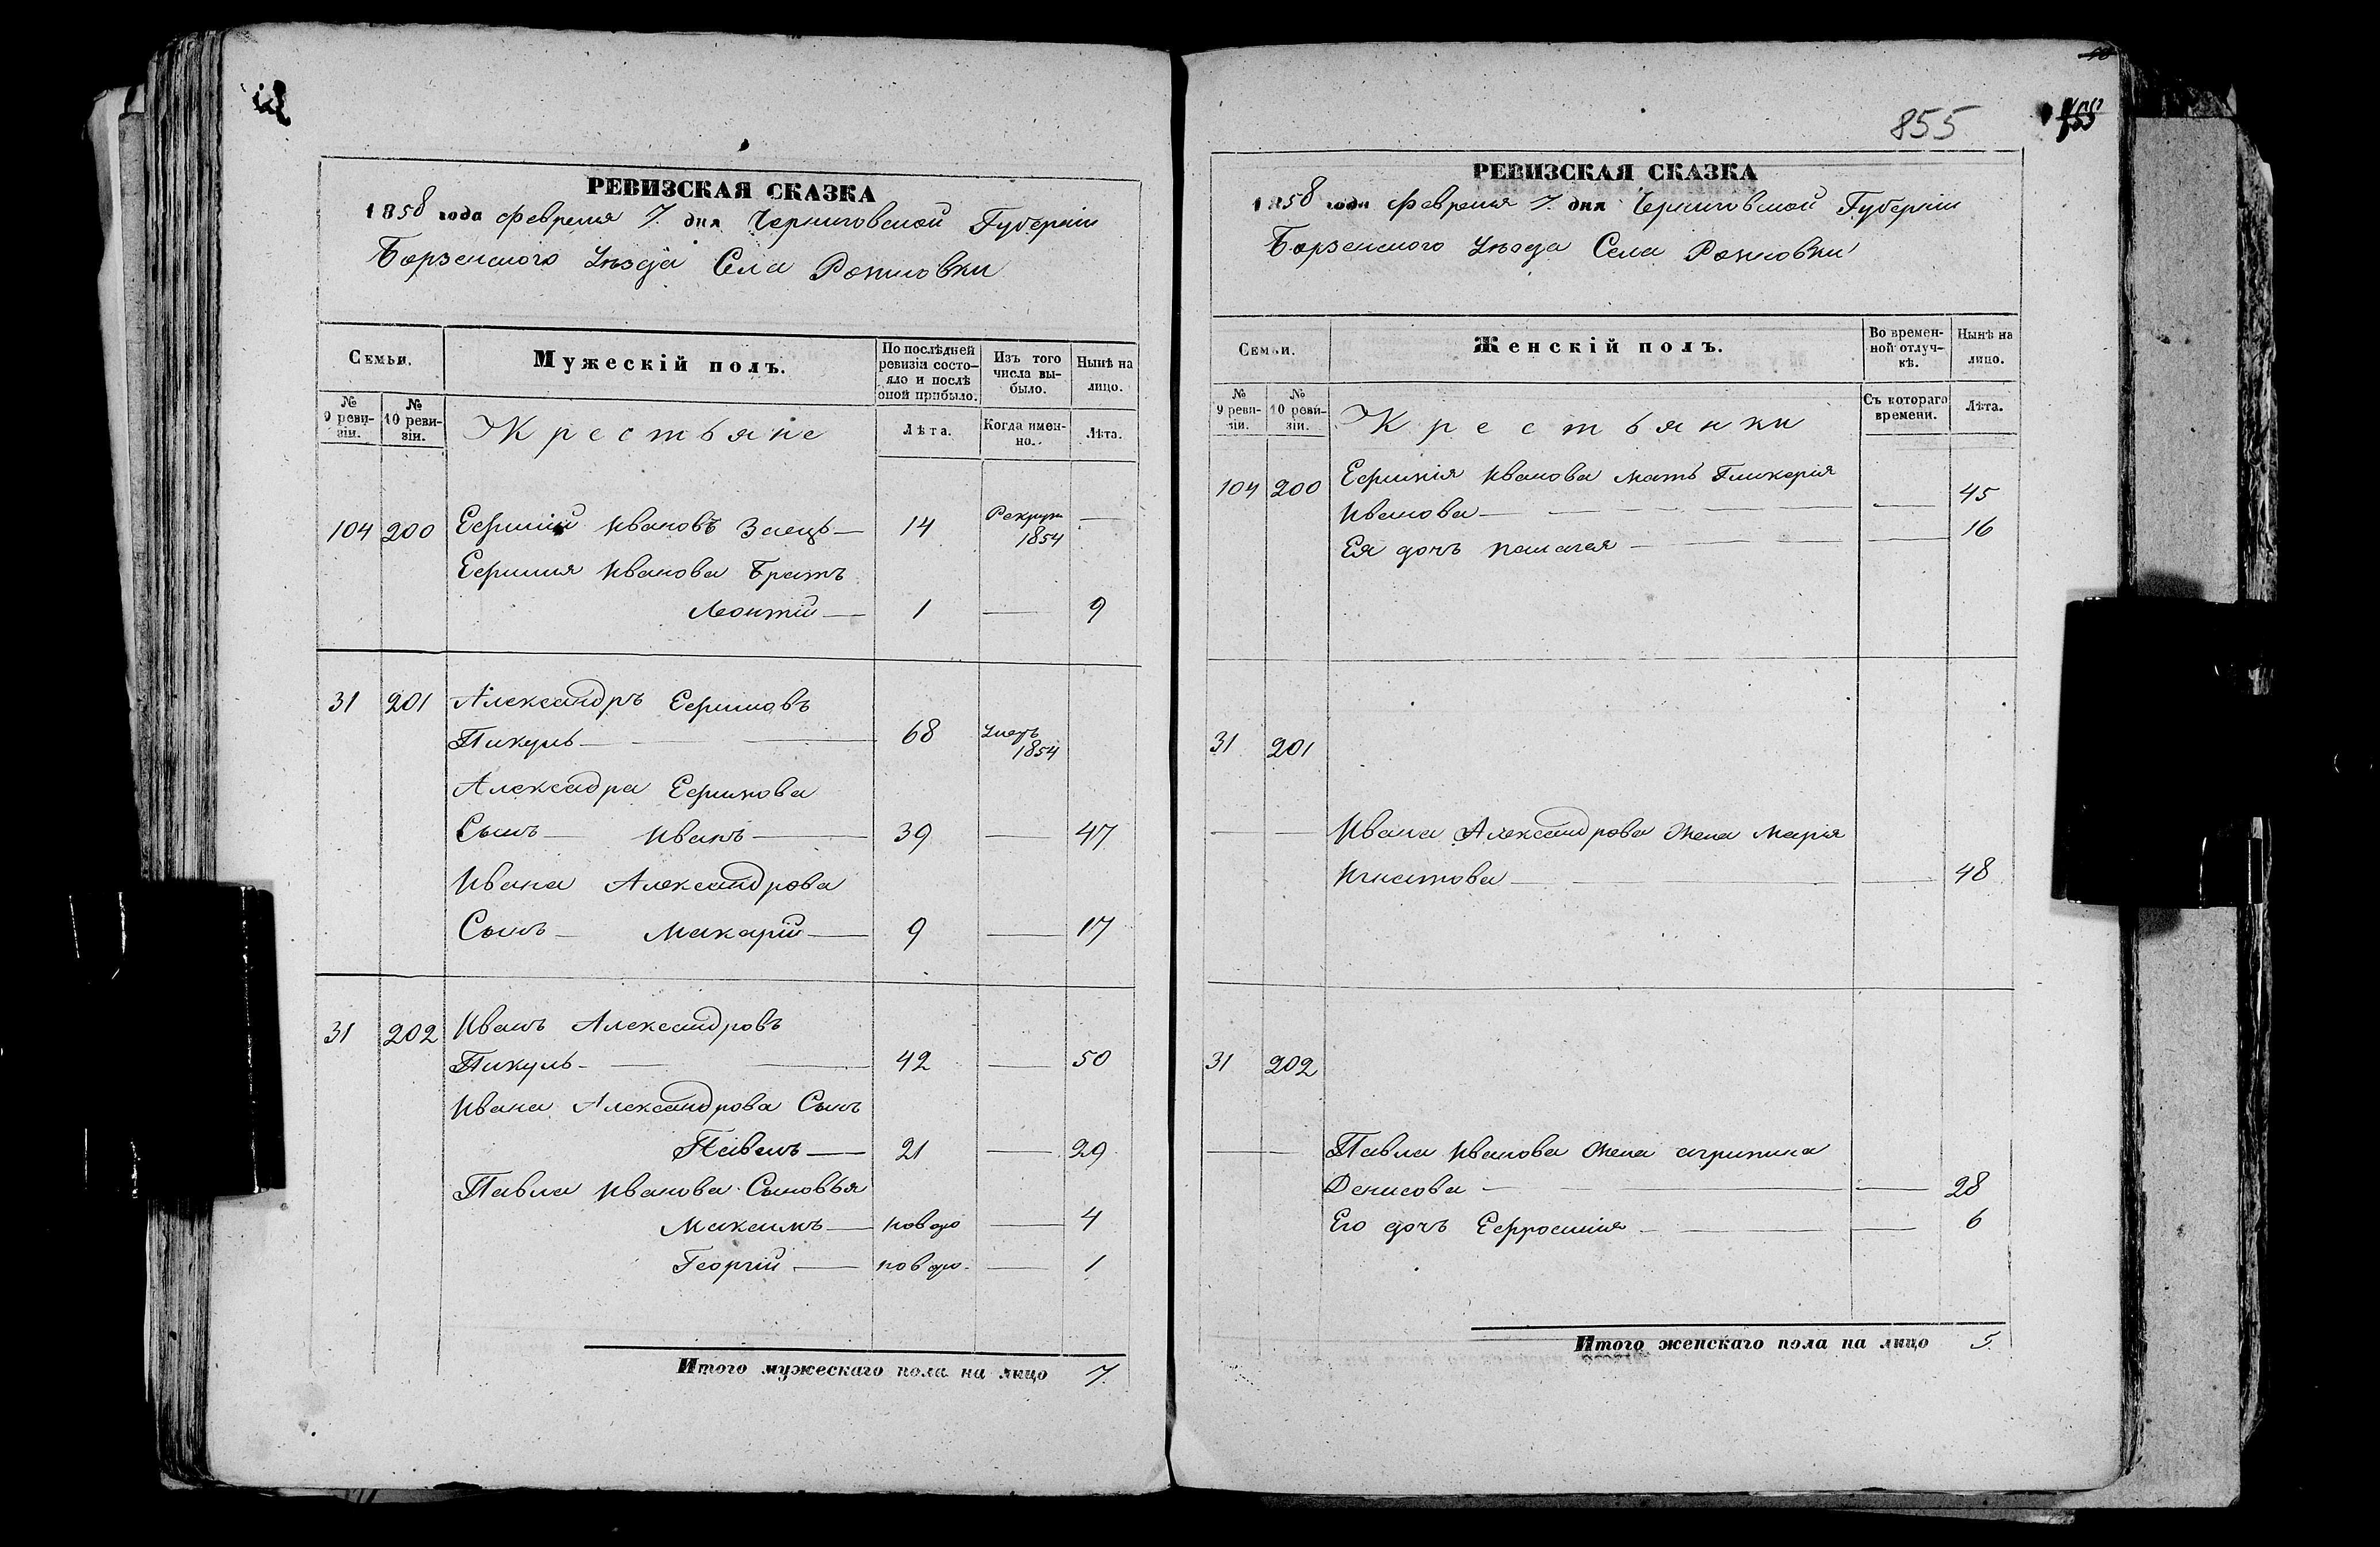 РЕВИЗСКАЯ СКАЗКА
1858 года Февраля 7 дня Черниговской Губерніи
Борзенского Уѣзда Села Рожновки
Семьи.
Мужескій полъ.
По послѣдней ревизіи состояло и послѣ оной прибыло.
Изъ того числа выбыло.
Нынѣ на лицо.
№ 9 ревизіи.
№ 10 ревизіи.
Крестьяне
Лѣта.
Когда именно.
Лѣта.
104 200 Ефимій Ивановъ Заецъ — 14 Рекрут 1854 —
Ефимия Иванова Братъ
Леонтій — 1 — 9
31 201 Александръ Ефимовъ
Пикуль — 68 Умеръ 1854
Александра Ефимова
Сынъ — Иванъ — 39 — 47
Ивана Александрова
Сынъ — Макарій — 9 — 17
31 202 Иванъ Александровъ
Пикуль — 42 — 50
Ивана Александрова Сынъ
Павелъ — 21 — 29
Павла Иванова Сыновья
Максимъ — новоро — 4
Георгій — новоро — 1
Итого мужескаго пола на лицо 7.
855
РЕВИЗСКАЯ СКАЗКА
1858 года Февраля 7 дня Черниговской Губерніи
Борзенского Уѣзда Села Рожновки
Семьи.
Женскій полъ.
Во временной отлучкѣ.
Нынѣ на лицо.
№ 9 ревизіи.
№ 10 ревизіи.
Крестьянки
Съ котораго времени.
Лѣта.
104 200 Ефимія Иванова мать Гликерія
Иванова — — 45
Ея дочь Палагея — — 16
31 201
— — Ивана Александрова жена Марія
Игнатова — — 48
31 202
— — Павла Иванова жена Агрипина
Денисова — — 28
Его дочь Ефросинія — — 6
Итого женскаго пола на лицо 5.